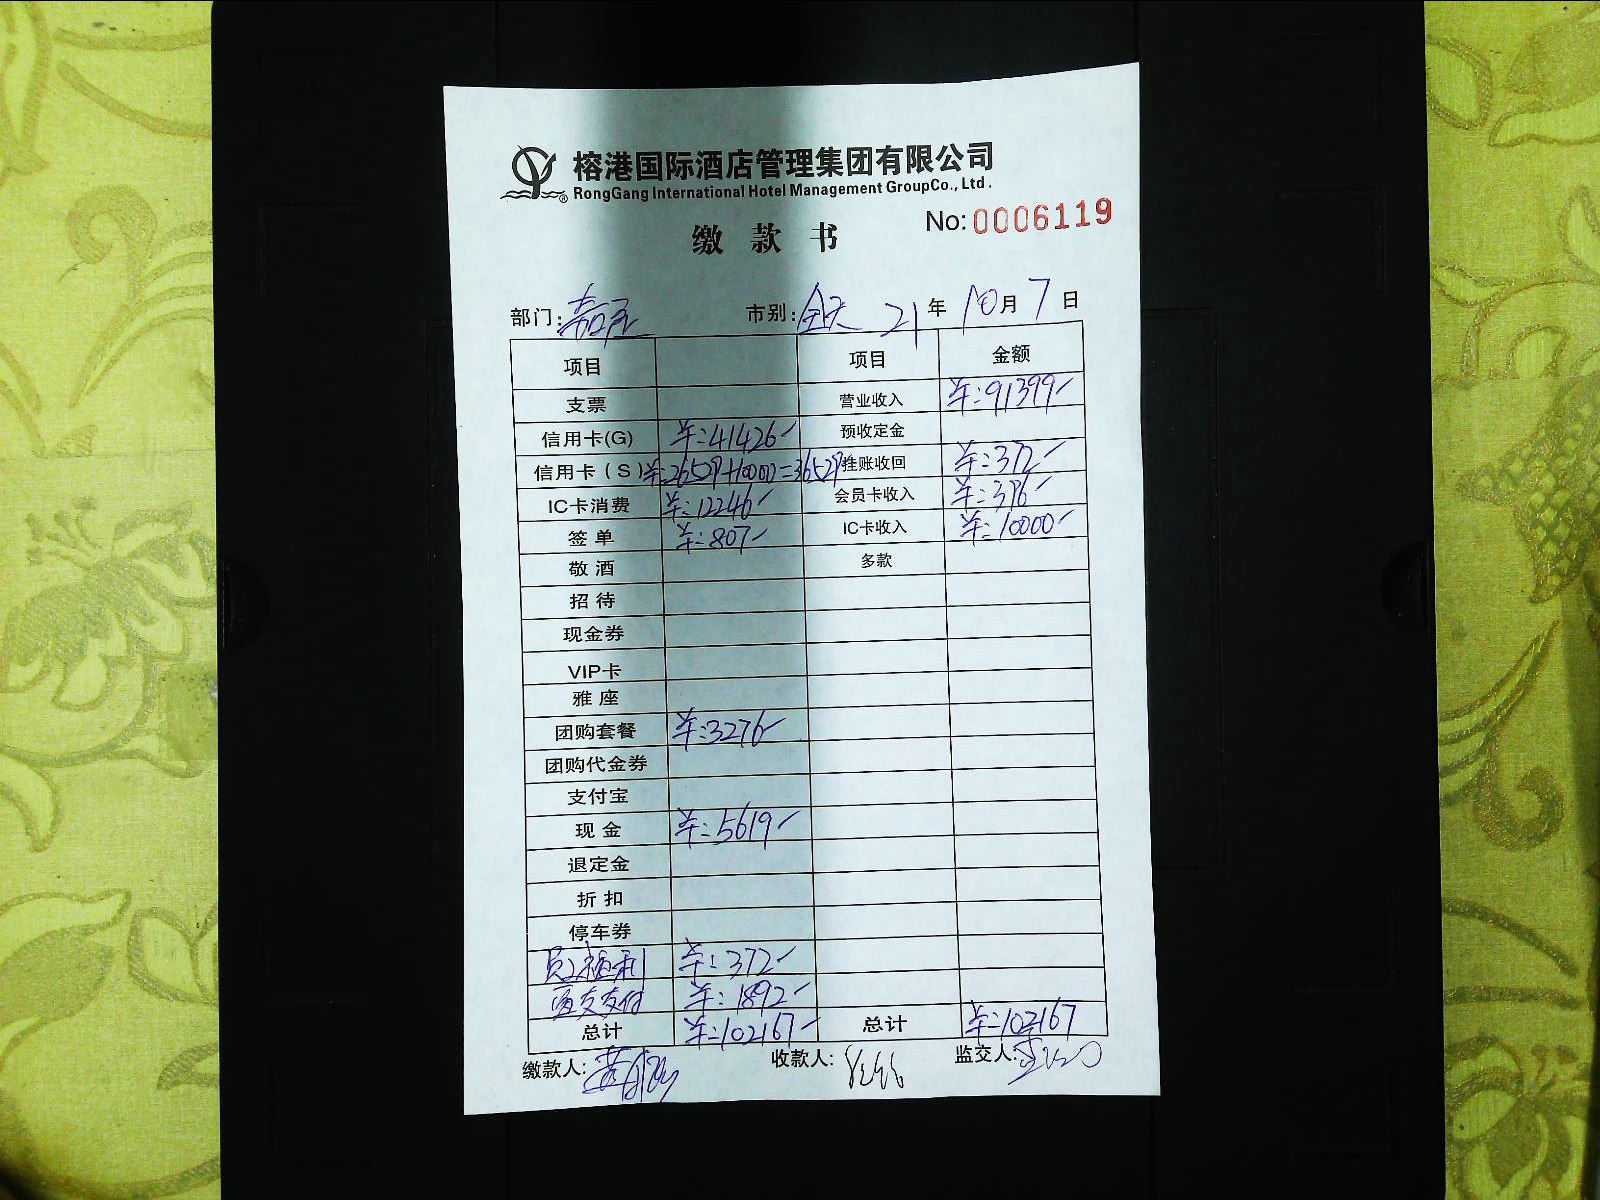 榕港国际酒店管理集团有限公司
RongGang International Hotel Management GroupCo., Ltd.
No: 0006119
缴款书
部门: 市别: 全天 21年 10月 7日
项目 项目 金额
支票 营业收入 ¥:91399-
信用卡(G) ¥:41426- 预收定金
信用卡(S) ¥:26529+10000=36529 挂账收回 ¥:372-
IC卡消费 ¥:12246- 会员卡收入 ¥:396-
签单 ¥:807- IC卡收入 ¥:10000-
敬酒 多款
招待
现金券
VIP卡
雅座
团购套餐 ¥:3276-
团购代金券
支付宝
现金 ¥:5619-
退定金
折扣
停车券
员工福利 ¥:372-
支付 ¥:1892-
总计 ¥:102167- 总计 ¥:102167
缴款人: 收款人: 监交人: